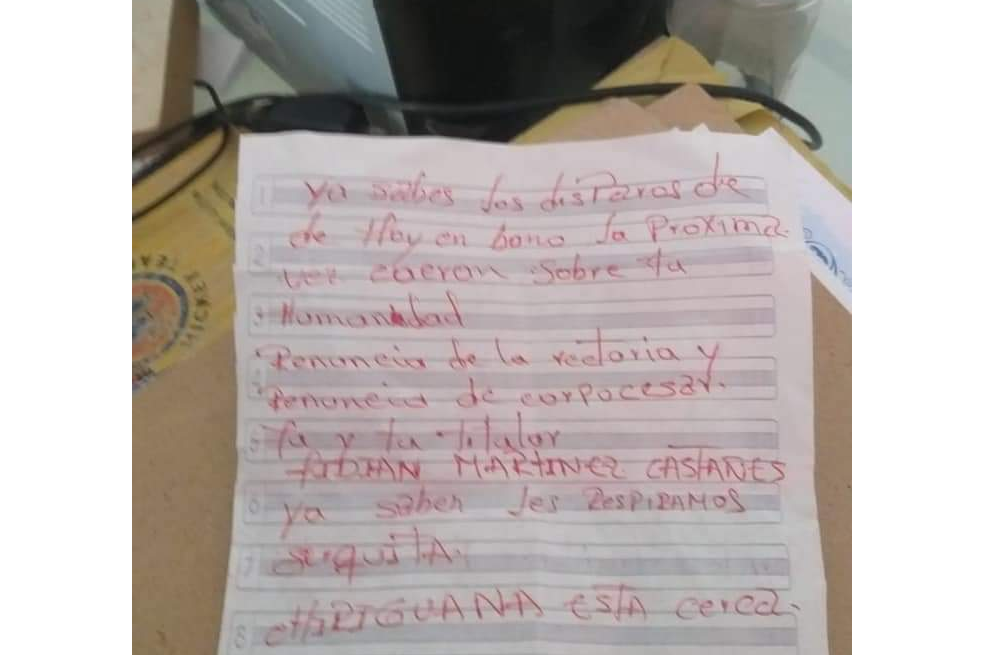 1 ya sabes los disparos de
de Hoy en bono la Proxima
2 vez caeran sobre tu
3 Humanidad
Renuncia de la rectoria y
Renuncia de corpocesar.
5 Tu y tu titular
FABIAN MARTINEZ CASTANES
6 ya saben les RESPIRAMOS
7 serquitA.
8 ARIGUANA ESTA cerca.